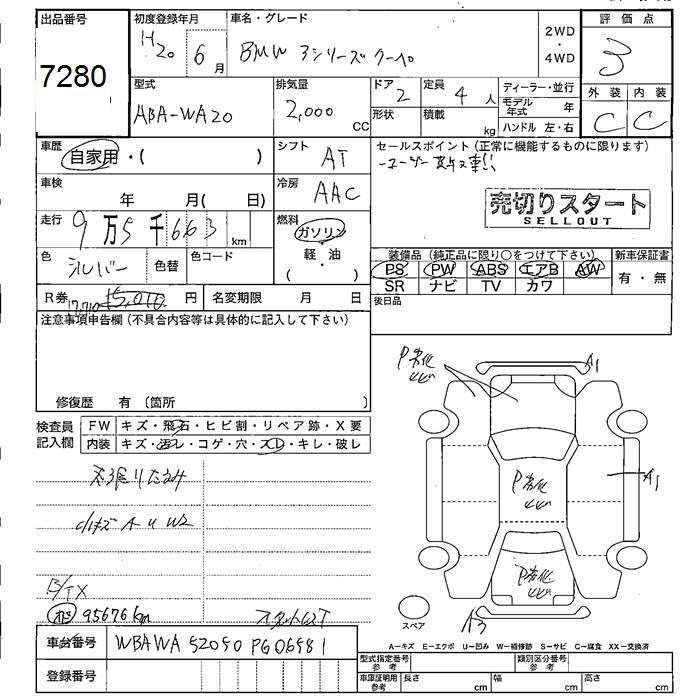 出品番号
7280
初度登録年月
H20 6月
車名・グレード
BMW 3シリーズクーペ
2WD
・
4WD
評価点
3
型式
ABA-WA20
排気量
2,000 CC
ドア
2
形状
定員
4人
積載
kg
ディーラー・並行
モデル年式 年
ハンドル 左・右
外装
C
内装
C
車歴
自家用・( )
シフト
AT
セールスポイント(正常に機能するものに限ります)
車検
年 月( 日)
冷房
AAC
売切りスタート
SELLOUT
走行
9万5千663km
燃料
ガソリン
軽・油
( )
色
シルバー
色替
色コード
装備品(純正品に限り○をつけて下さい)
新車保証書
PS PW ABS エアB AW
SR ナビ TV カワ
有・無
R券
円
名変期限 月 日
後日品
注意事項申告欄(不具合内容等は具体的に記入して下さい)
修復歴 有(箇所 )
検査員
記入欄
FW キズ・飛石・ヒビ割・リペア跡・X要
内装 キズ・汚レ・コゲ・穴・スレ・キレ・破レ
天張りたるみ
小キズ A U W2
95676km
A1
P劣化
P劣化
A1
P劣化
スペア
A3
A-キズ E-エクボ U-凹み W-補修跡 S-サビ C-腐食 XX-交換済
車台番号
WBAWA52050PG06581
登録番号
型式指定番号
参考
類別区分番号
参考
車庫証明用
参考
長さ cm
幅 cm
高さ cm